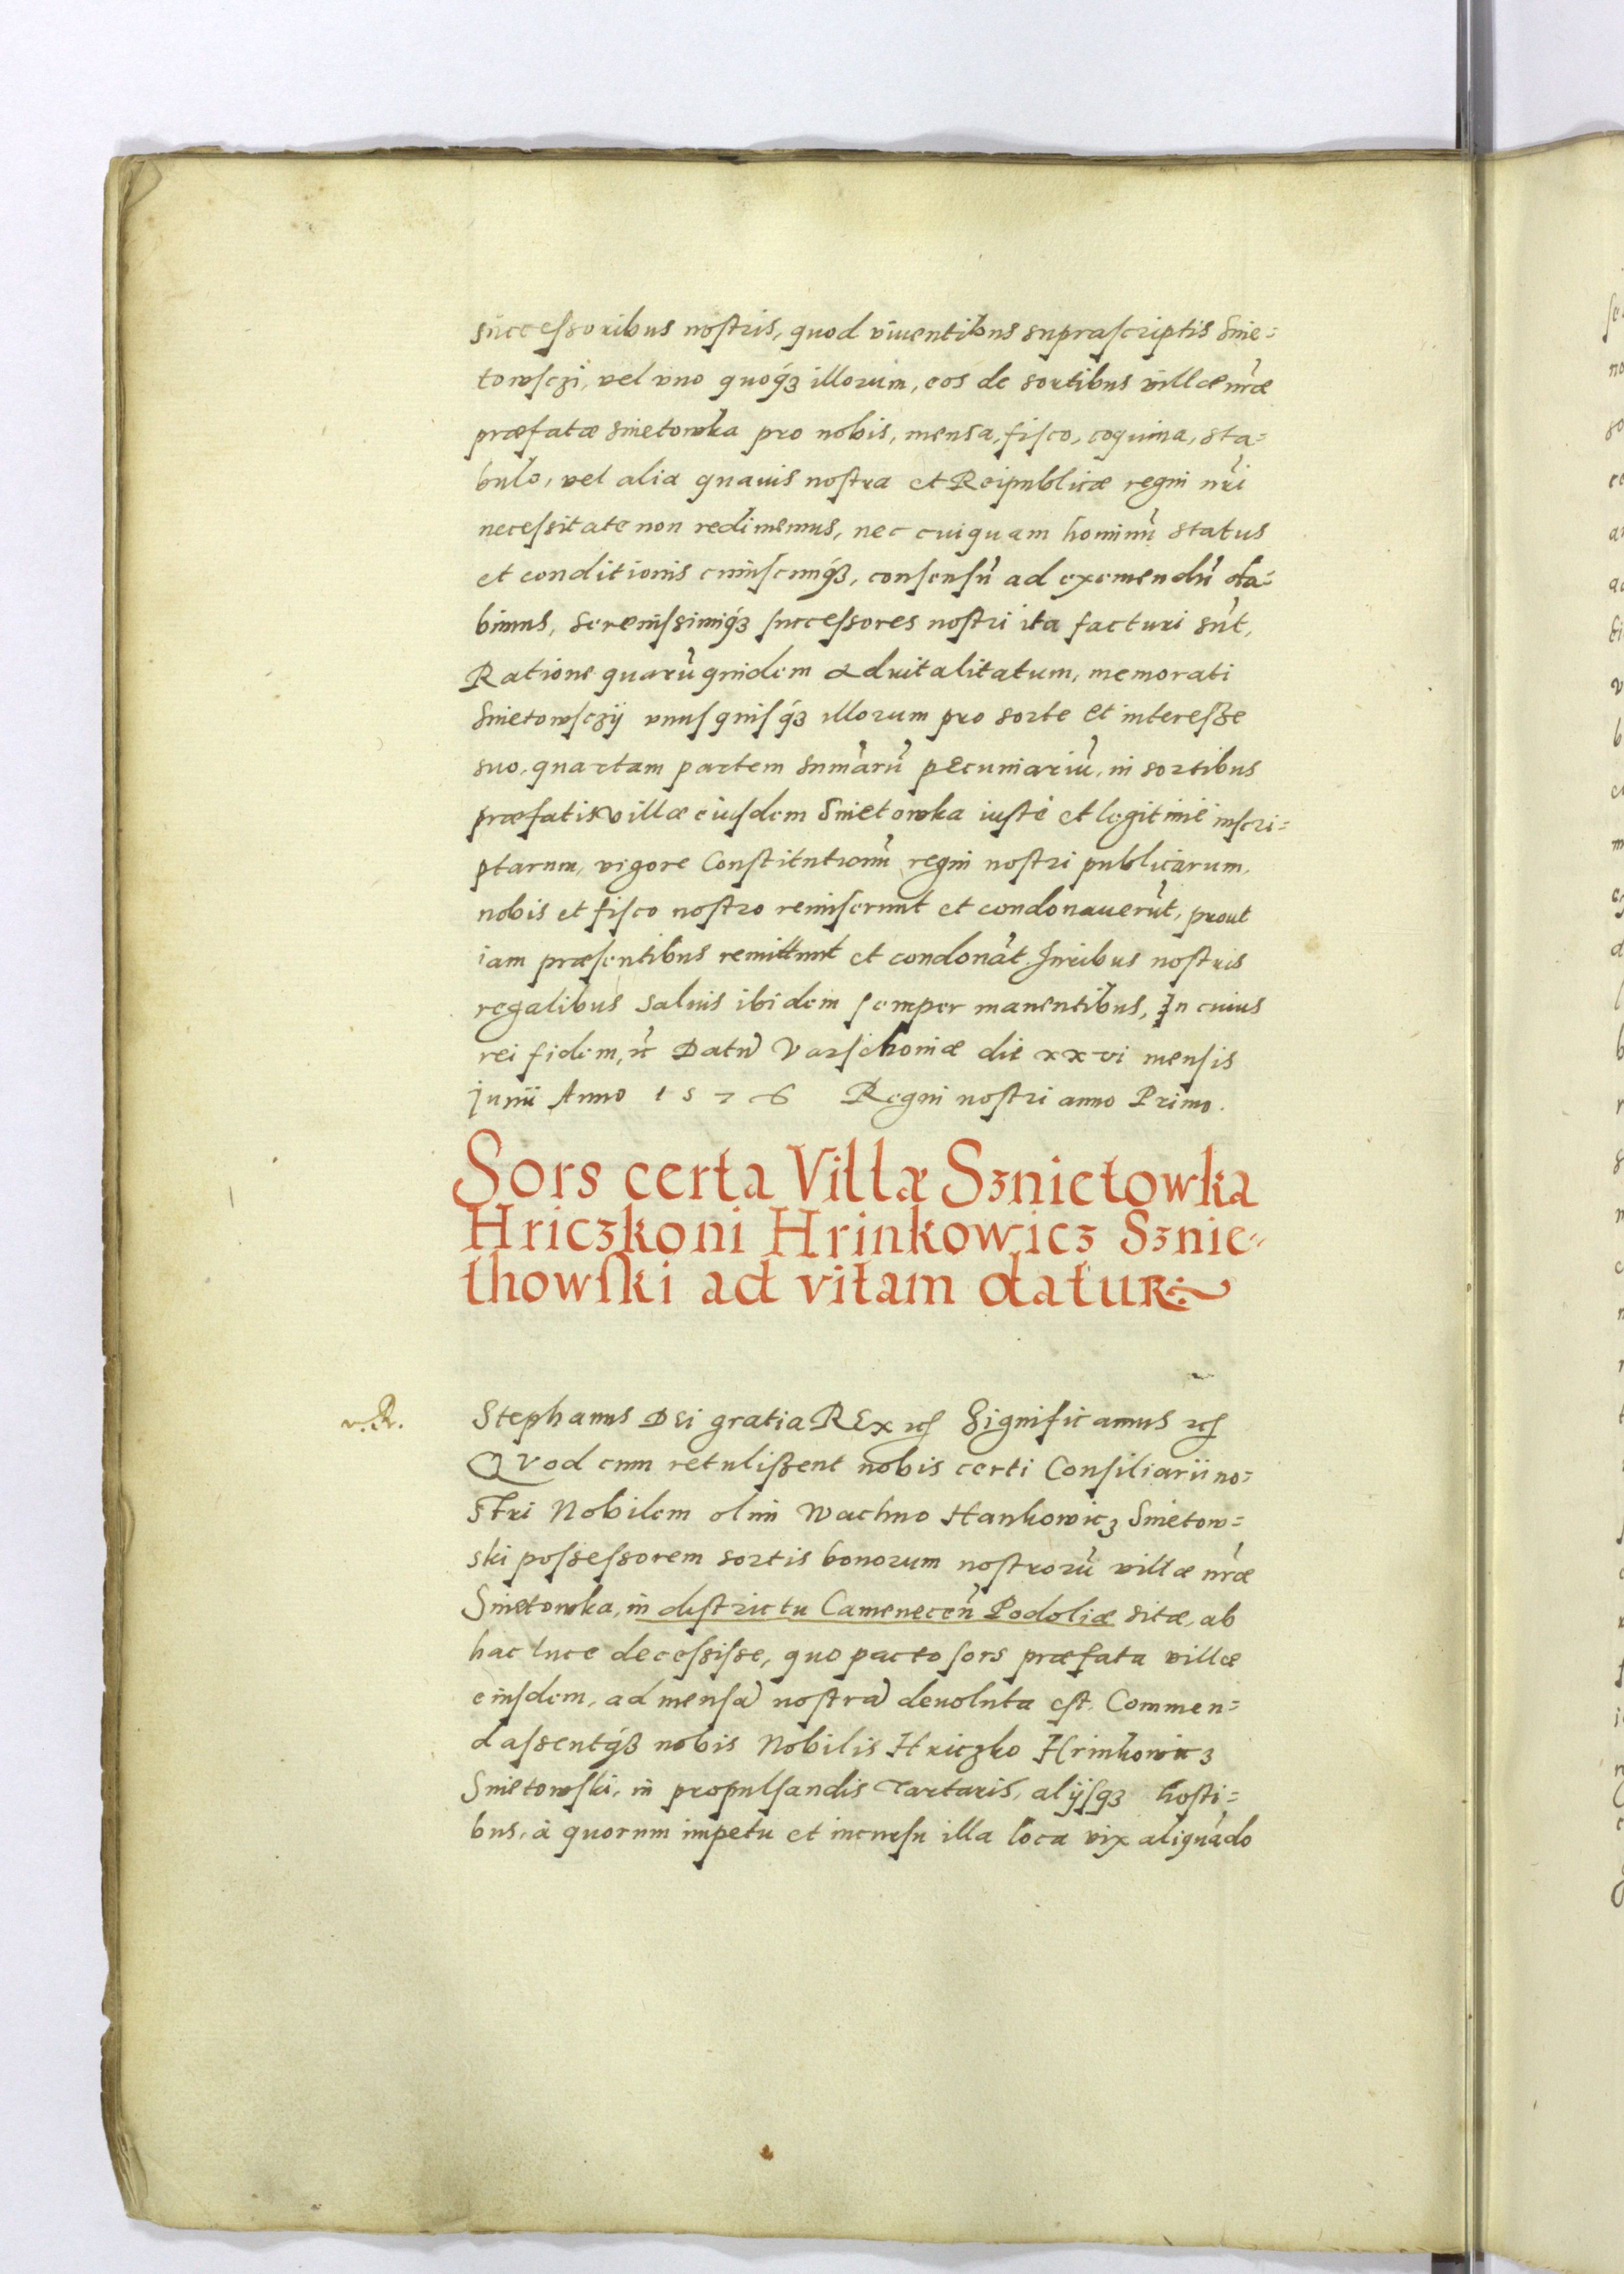 successoribus nostris, quod viuentibus suprascriptis Snie=
towsczi, vel vno quoq́ꝫ illorum, eos de sortibus villæ nr̃æ
præfatæ Snietowka pro nobis, mensa, fisco, coquina, sta=
bulo, vel alia quauis nostra et Reipublicæ regni nr̃i
necessitate non redimemus, nec cuiquam hominũ status
et conditionis cuiuscunq́ꝫ, consensũ ad exemendũ da=
bimus, Serenissimiq́ꝫ successores nostri ita facturi sũt,
Ratione quarũ quidem aduitalitatum, memorati
Snietowsczij vnusquisq́ꝫ illorum pro sorte et interesse
suo, quartam partem summarũ pecuniariũ, in sortibus
præfatis villæ eiusdem Snietowka iuste et legitime inscri=
ptarum, vigore Constitutionũ regni nostri publicarum,
nobis et fisco nostro remiserunt et condonauerũt, prout
iam præsentibus remittunt et condonãt. Iuribus nostris
regalibus saluis ibidem semper manentibus, In cuius
rei fidem, ꝛc Datũ Varschouiæ die xxvi mensis
Junii Anno 1576 Regni nostri anno Primo.
Sors certa Villæ Sznietowka
Hriczkoni Hrinkowicz Sznie=
thowski ad vitam datur
v. R.
Stephanus DEi gratia REx ꝛcꝭ Significamus ꝛcꝭ
QVod cum retulissent nobis certi Consiliarii no=
stri Nobilem olim Wachno Hankowicz Snietow=
ski possessorem sortis bonorum nostrorũ villæ nr̃æ
Snietowka, in districtu Cameneceñ Podoliæ sitæ, ab
hac luce decessisse, quo pacto sors præfata villæ
eiusdem, ad mensã nostrã deuoluta est. Commen=
dassentq́ꝫ nobis Nobilis Hriczko Hrinkowicz
Snietowski, in propulsandis Tartaris, alijsqꝫ hosti=
bus, à quorum impetu et incursu illa loca vix aliquãdo